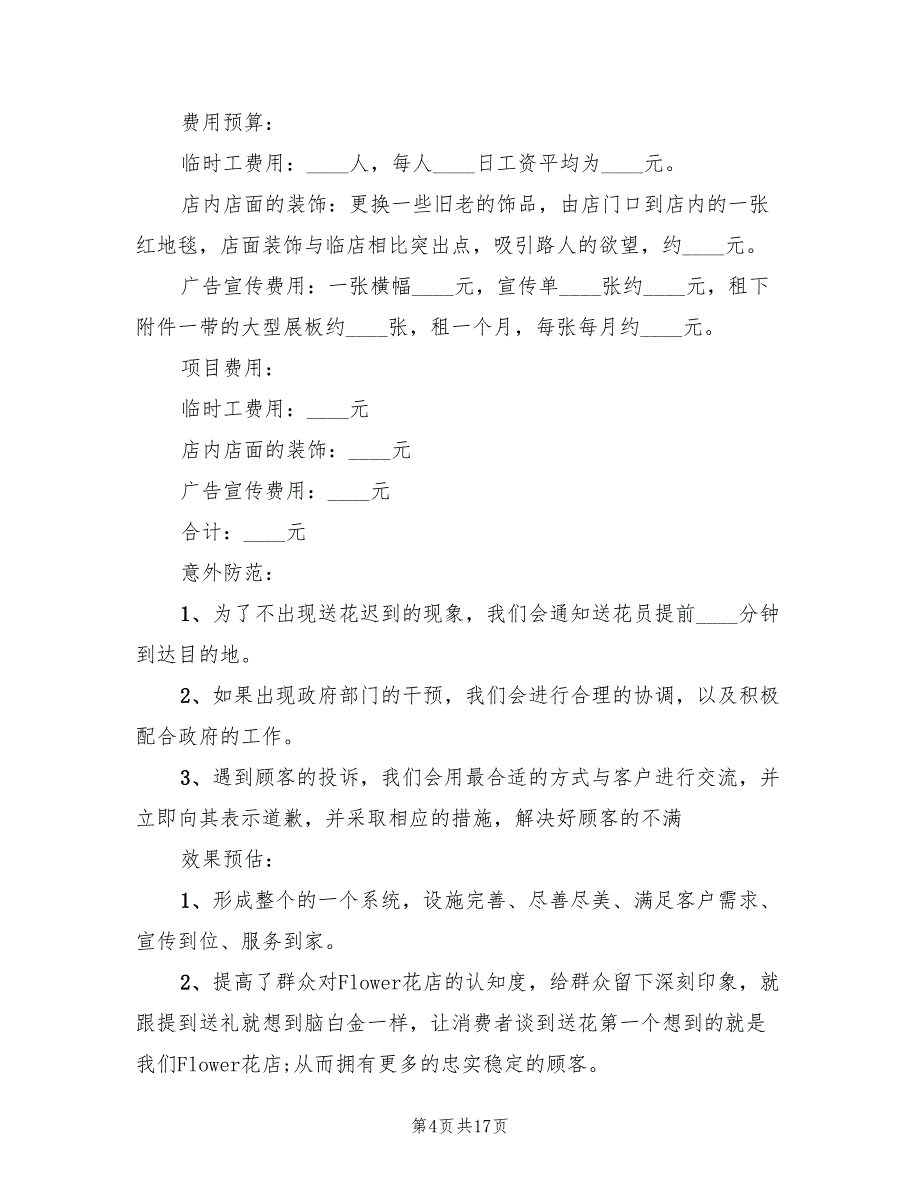 费用预算：
临时工费用：____人，每人____日工资平均为____元。
店内店面的装饰：更换一些旧老的饰品，由店门口到店内的一张
红地毯，店面装饰与临店相比突出点，吸引路人的欲望，约____元。
广告宣传费用：一张横幅____元，宣传单____张约____元，租下
附件一带的大型展板约____张，租一个月，每张每月约____元。
项目费用：
临时工费用：____元
店内店面的装饰：____元
广告宣传费用：____元
合计：____元
意外防范：
1、为了不出现送花迟到的现象，我们会通知送花员提前____分钟
到达目的地。
2、如果出现政府部门的干预，我们会进行合理的协调，以及积极
配合政府的工作。
3、遇到顾客的投诉，我们会用最合适的方式与客户进行交流，并
立即向其表示道歉，并采取相应的措施，解决好顾客的不满
效果预估：
1、形成整个的一个系统，设施完善、尽善尽美、满足客户需求、
宣传到位、服务到家。
2、提高了群众对Flower花店的认知度，给群众留下深刻印象，就
跟提到送礼就想到脑白金一样，让消费者谈到送花第一个想到的就是
我们Flower花店;从而拥有更多的忠实稳定的顾客。
第4页共17页